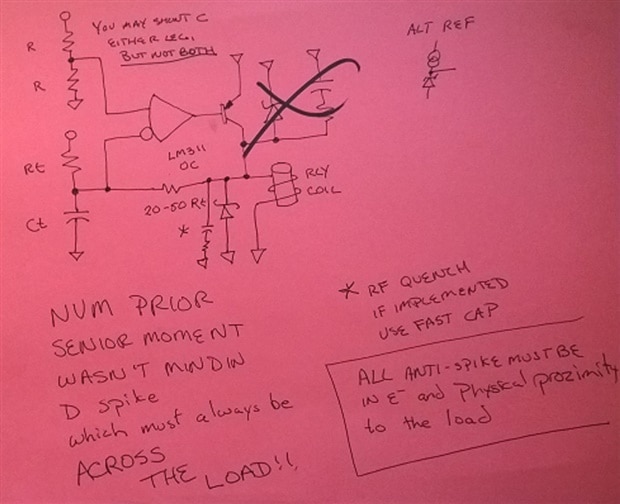 YOU MAY SHUNT C
EITHER LEG,
BUT NOT BOTH
ALT REF
R
R
Rt
Ct
LM311
OC
20-50 Rt
*
RLY
COIL
NUM PRIOR
SENIOR MOMENT
WASN'T MINDIN
D spike
which must always be
ACROSS
THE LOAD!!
* RF QUENCH
IF IMPLEMENTED
USE FAST CAP
ALL ANTI-SPIKE MUST BE
IN E⁻ and Physical proximity
to the load